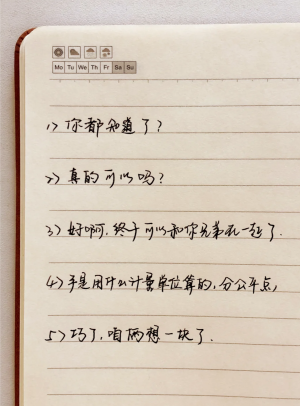 Mo Tu We Th Fr Sa Su
1> 你都知道了?
2> 真的可以吗?
3> 好啊,终于可以和你兄弟在一起了.
4> 于是用什么计量单位算的,分公平点,
5> 巧了,咱俩想一块了.